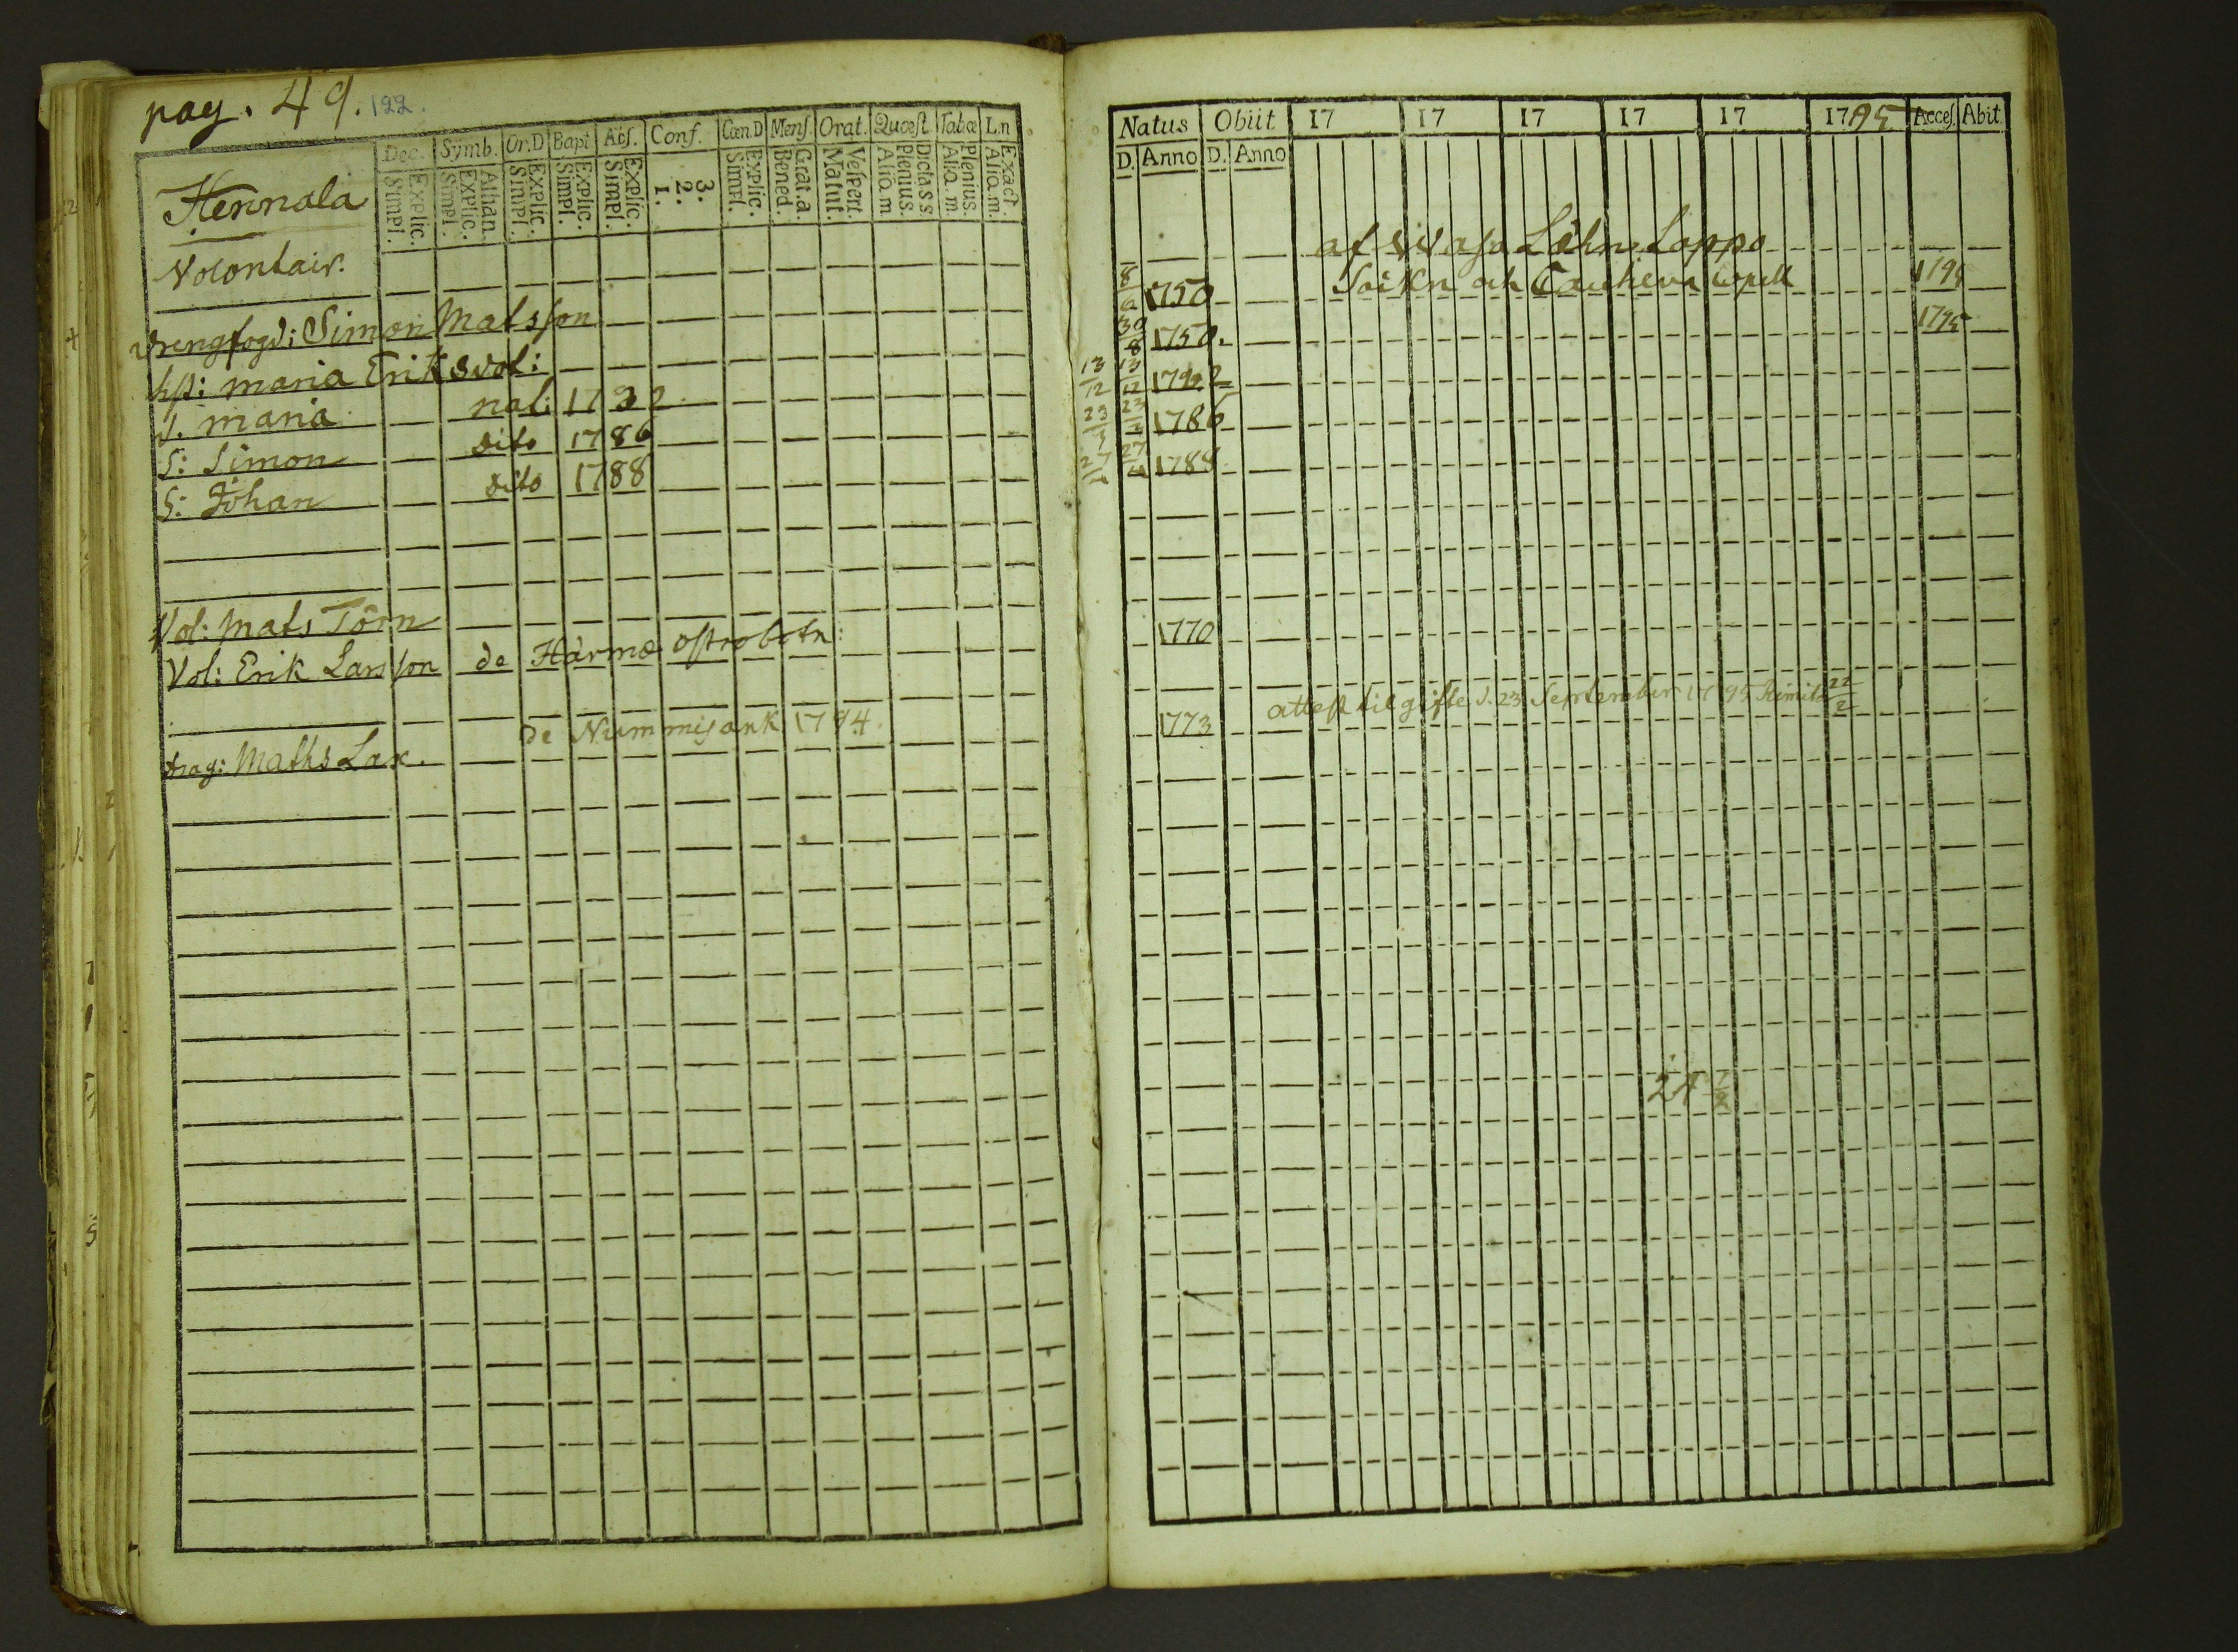 pag. 49. 122.
Dec. Symb. Or.D Bapt Abs. Conf. Cœn.D Mens. Orat. Quæst. Tabæ L.n
Simpl. Explic. Simpl. Explic. Athan. Simpl. Explic. Simpl. Explic. Simpl. Explic. 1. 2. 3. Simpl. Explic. Bened. Grat. a. Matut. Vespert. Alio. m. Plenius. Dicta s s. Alio. m. Plenius. Alio. m. Exact.
Hennala
Volontair.
drengfogd: Simon Matsson
hst: maria Eriksdot:
d. maria nat: 1782
S: Simon dito 1786
S: Johan dito 1788
Vol: Mats Törn
Vol: Erik Larsson de Härmä Ostrobotn:
de Nummijank 1794.
drag: Maths Lax.
Natus Obiit 17 17 17 17 17 1795 Acces. Abit.
D. Anno D. Anno
af Wasa Lähn Lappo
8/6 1750 Sockn och Cauheva Capell 1795
30/8 1750. 1795
13/12 13/12 1782
23/3 23/3 1786
27 27 1788
1770
attest til gifte d. 23 September 1795 Kimito 22/2
1773